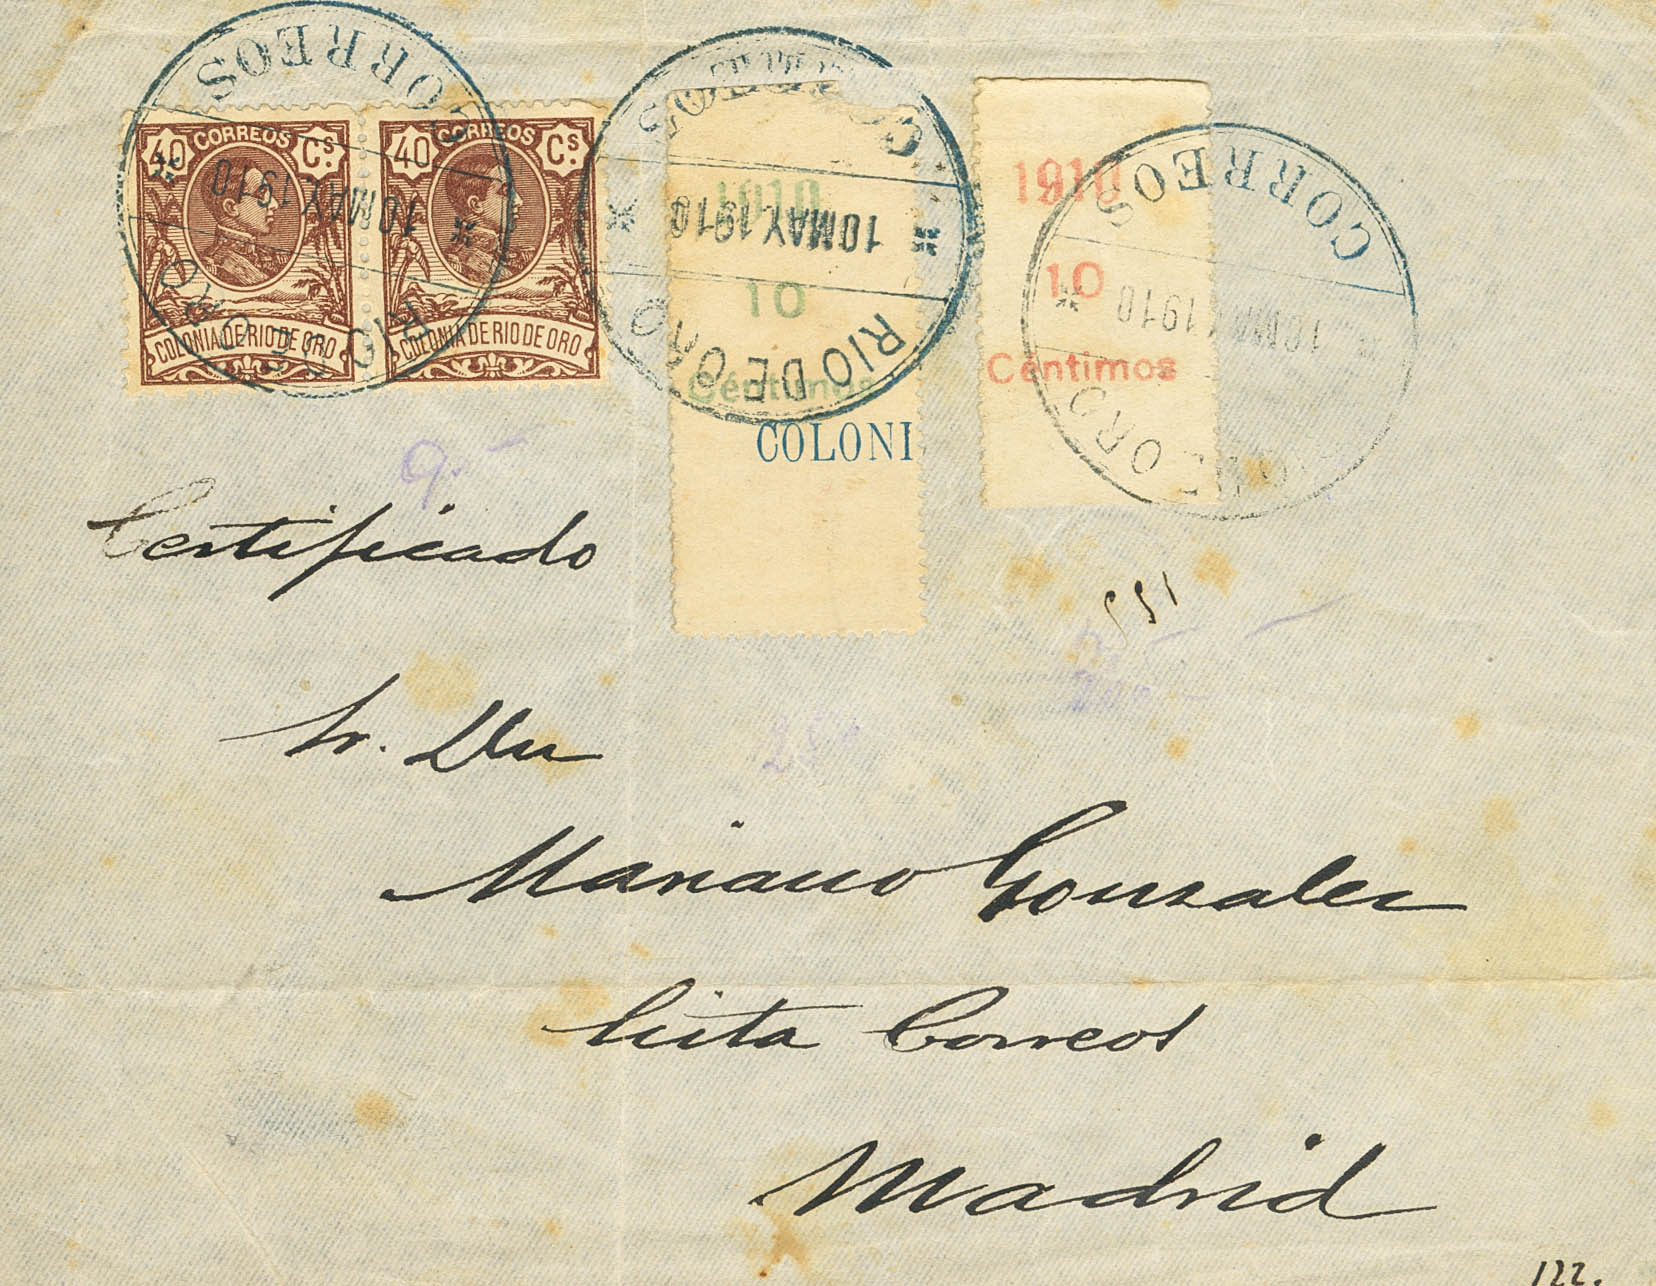 CORREOS
10 MAY. 1910
RIO DE ORO
40 CORREOS Cs.
COLONIA DE RIO DE ORO
40 CORREOS Cs.
COLONIA DE RIO DE ORO
CORREOS
10 MAY. 1910
RIO DE ORO
1910
10
Céntimos
COLONI
CORREOS
10 MAY. 1910
RIO DE ORO
1910
10
Céntimos
Certificado
Sr. Don
Mariano Gonzalez
Lista Correos
Madrid
122.